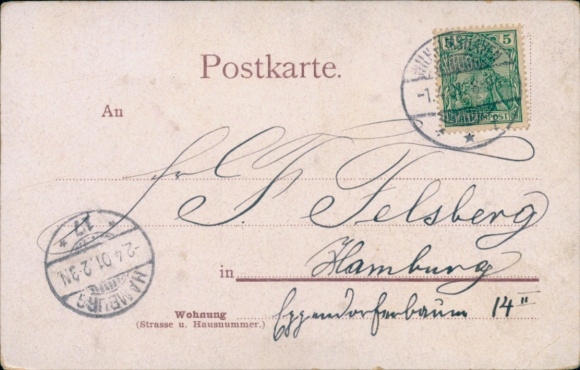 Postkarte.
5
An
Frl. F. Felsberg
in Hamburg
Wohnung
(Strasse u. Hausnummer.)
Eppendorferbaum 14 II
* 17 *
-2.4.01.2-3N
HAMBURG